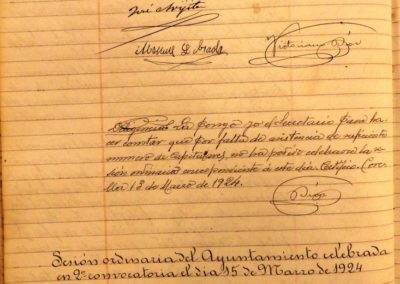 José
Manuel L. Prada Victoriano Díaz
Diligencia La pongo yo el Secretario para ha-
cer constar que por falta de asistencia de suficiente
número de Capitulares, no ha podido celebrarse la se-
sión ordinaria correspondiente a este día. Certifico.
13 de Marzo de 1924.
Díaz
Sesión ordinaria del Ayuntamiento celebrada
en 2ª convocatoria el día 15 de Marzo de 1924